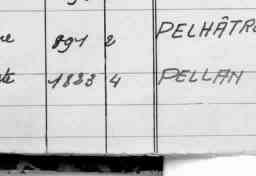 891 2 PELHÂTR
1883 4 PELLAN